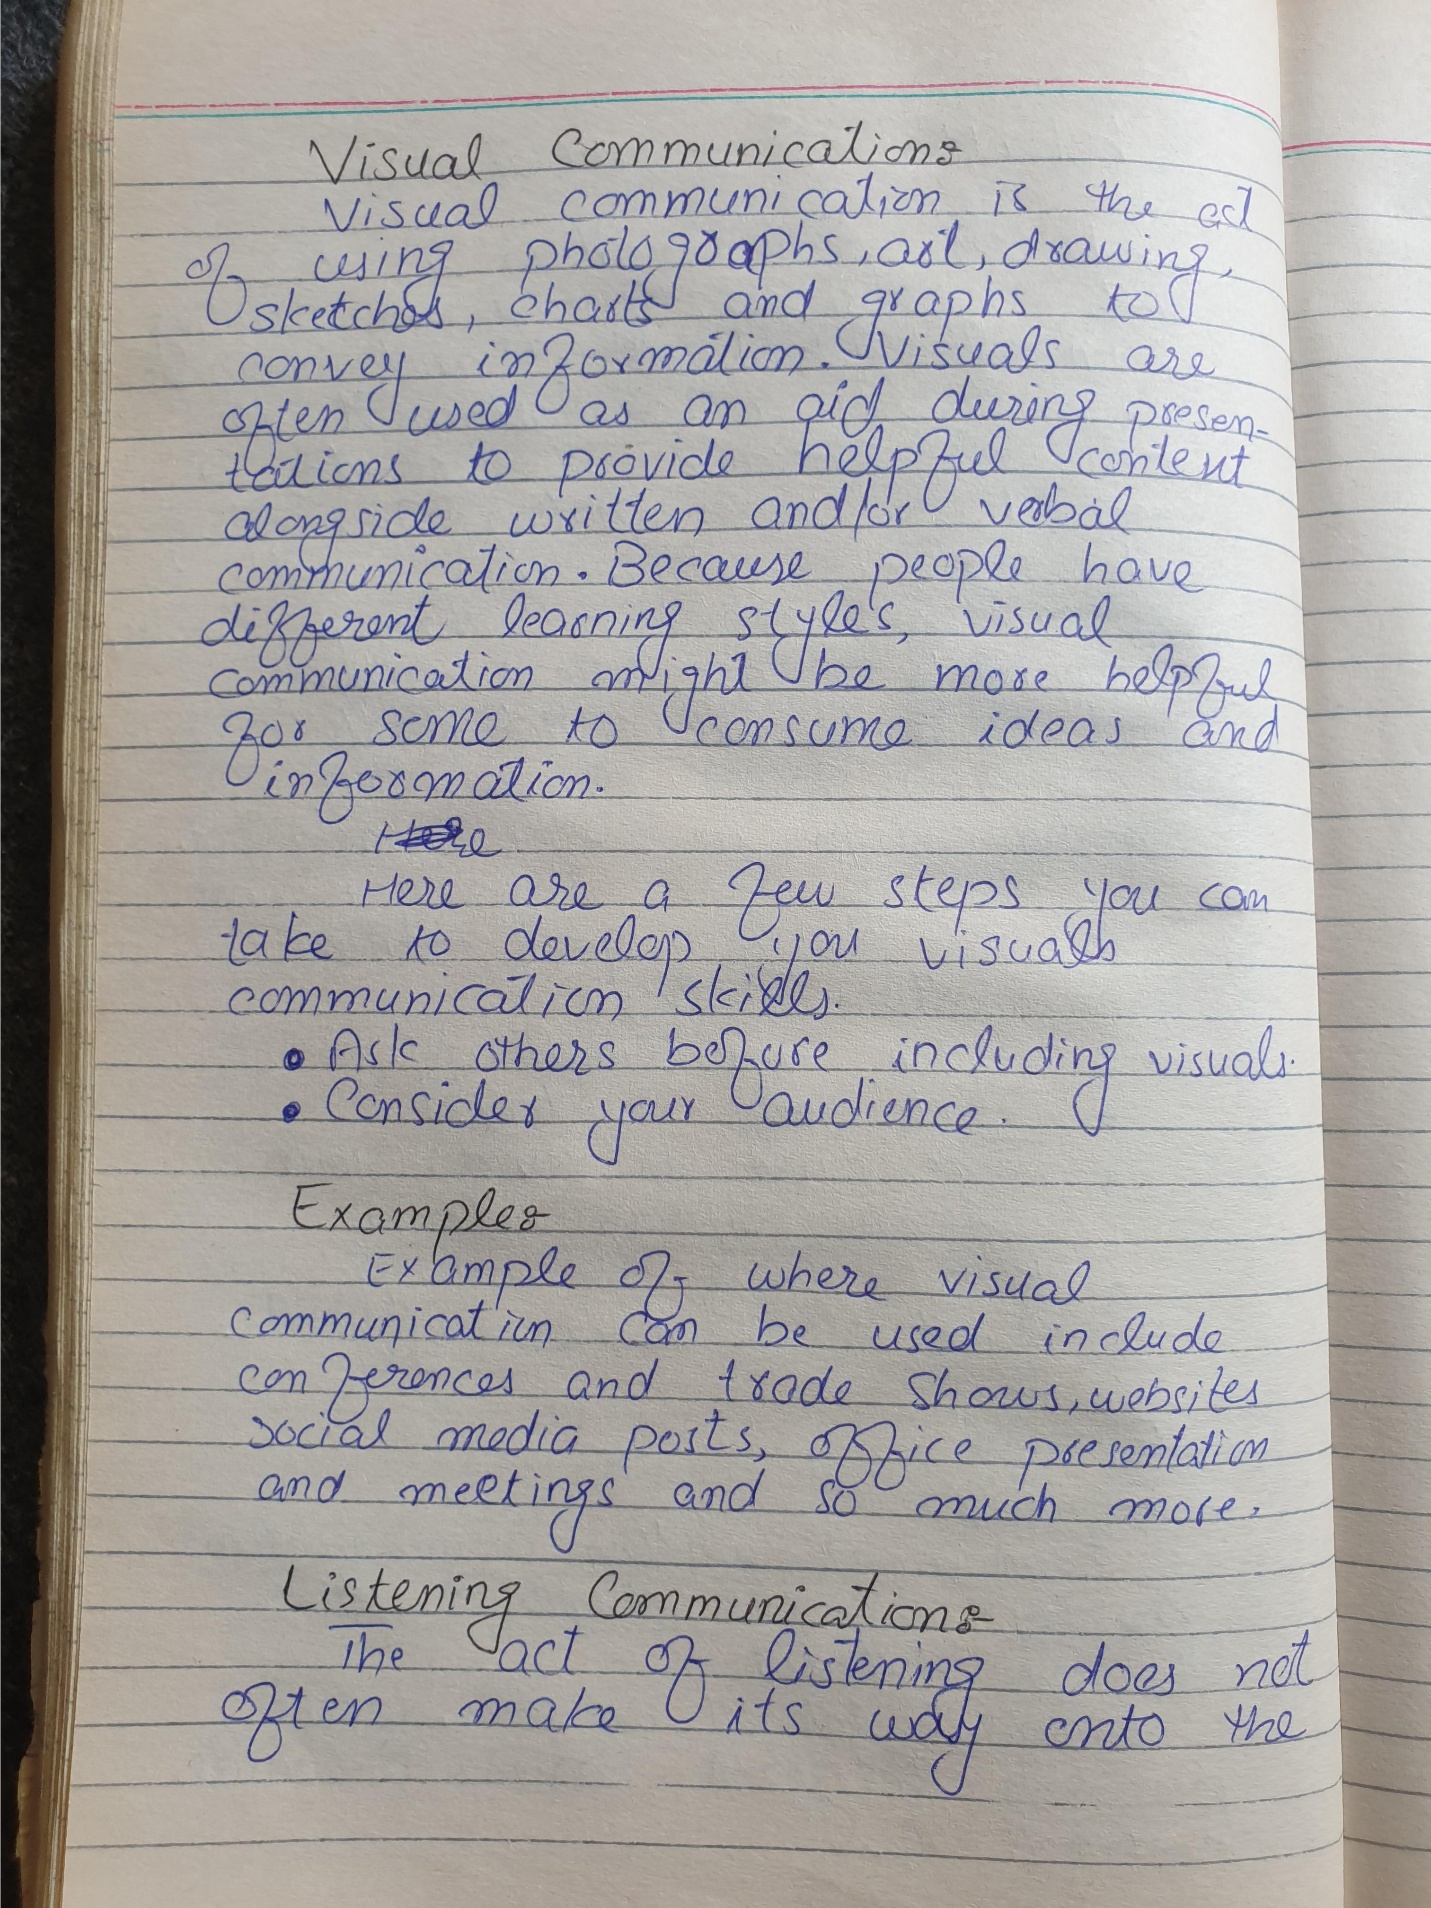 Visual Communication:-
Visual communication is the act
of using photographs, art, drawing,
sketches, charts and graphs to
convey information. Visuals are
often used as an aid during presen-
tations to provide helpful content
alongside written and/or verbal
communication. Because people have
different learning styles, visual
communication might be more helpful
for some to consume ideas and
information.
Here are a few steps you can
take to develop you visuals
communication skills.
• Ask others before including visuals.
• Consider your audience.
Example:-
Example of where visual
communication can be used include
conferences and trade shows, websites
social media posts, office presentation
and meetings and so much more.
Listening Communication:-
The act of listening does not
often make its way onto the